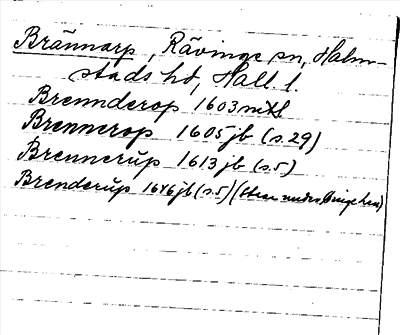 Brännarp, Rävinge sn, Halm-
stads hd, Hall. l.
Brennderop 1603 mtl
Brennerop 1605 jb (s. 29)
Brennerup 1613 jb (s. 5)
Brenderup 1646 jb (s. 5) (